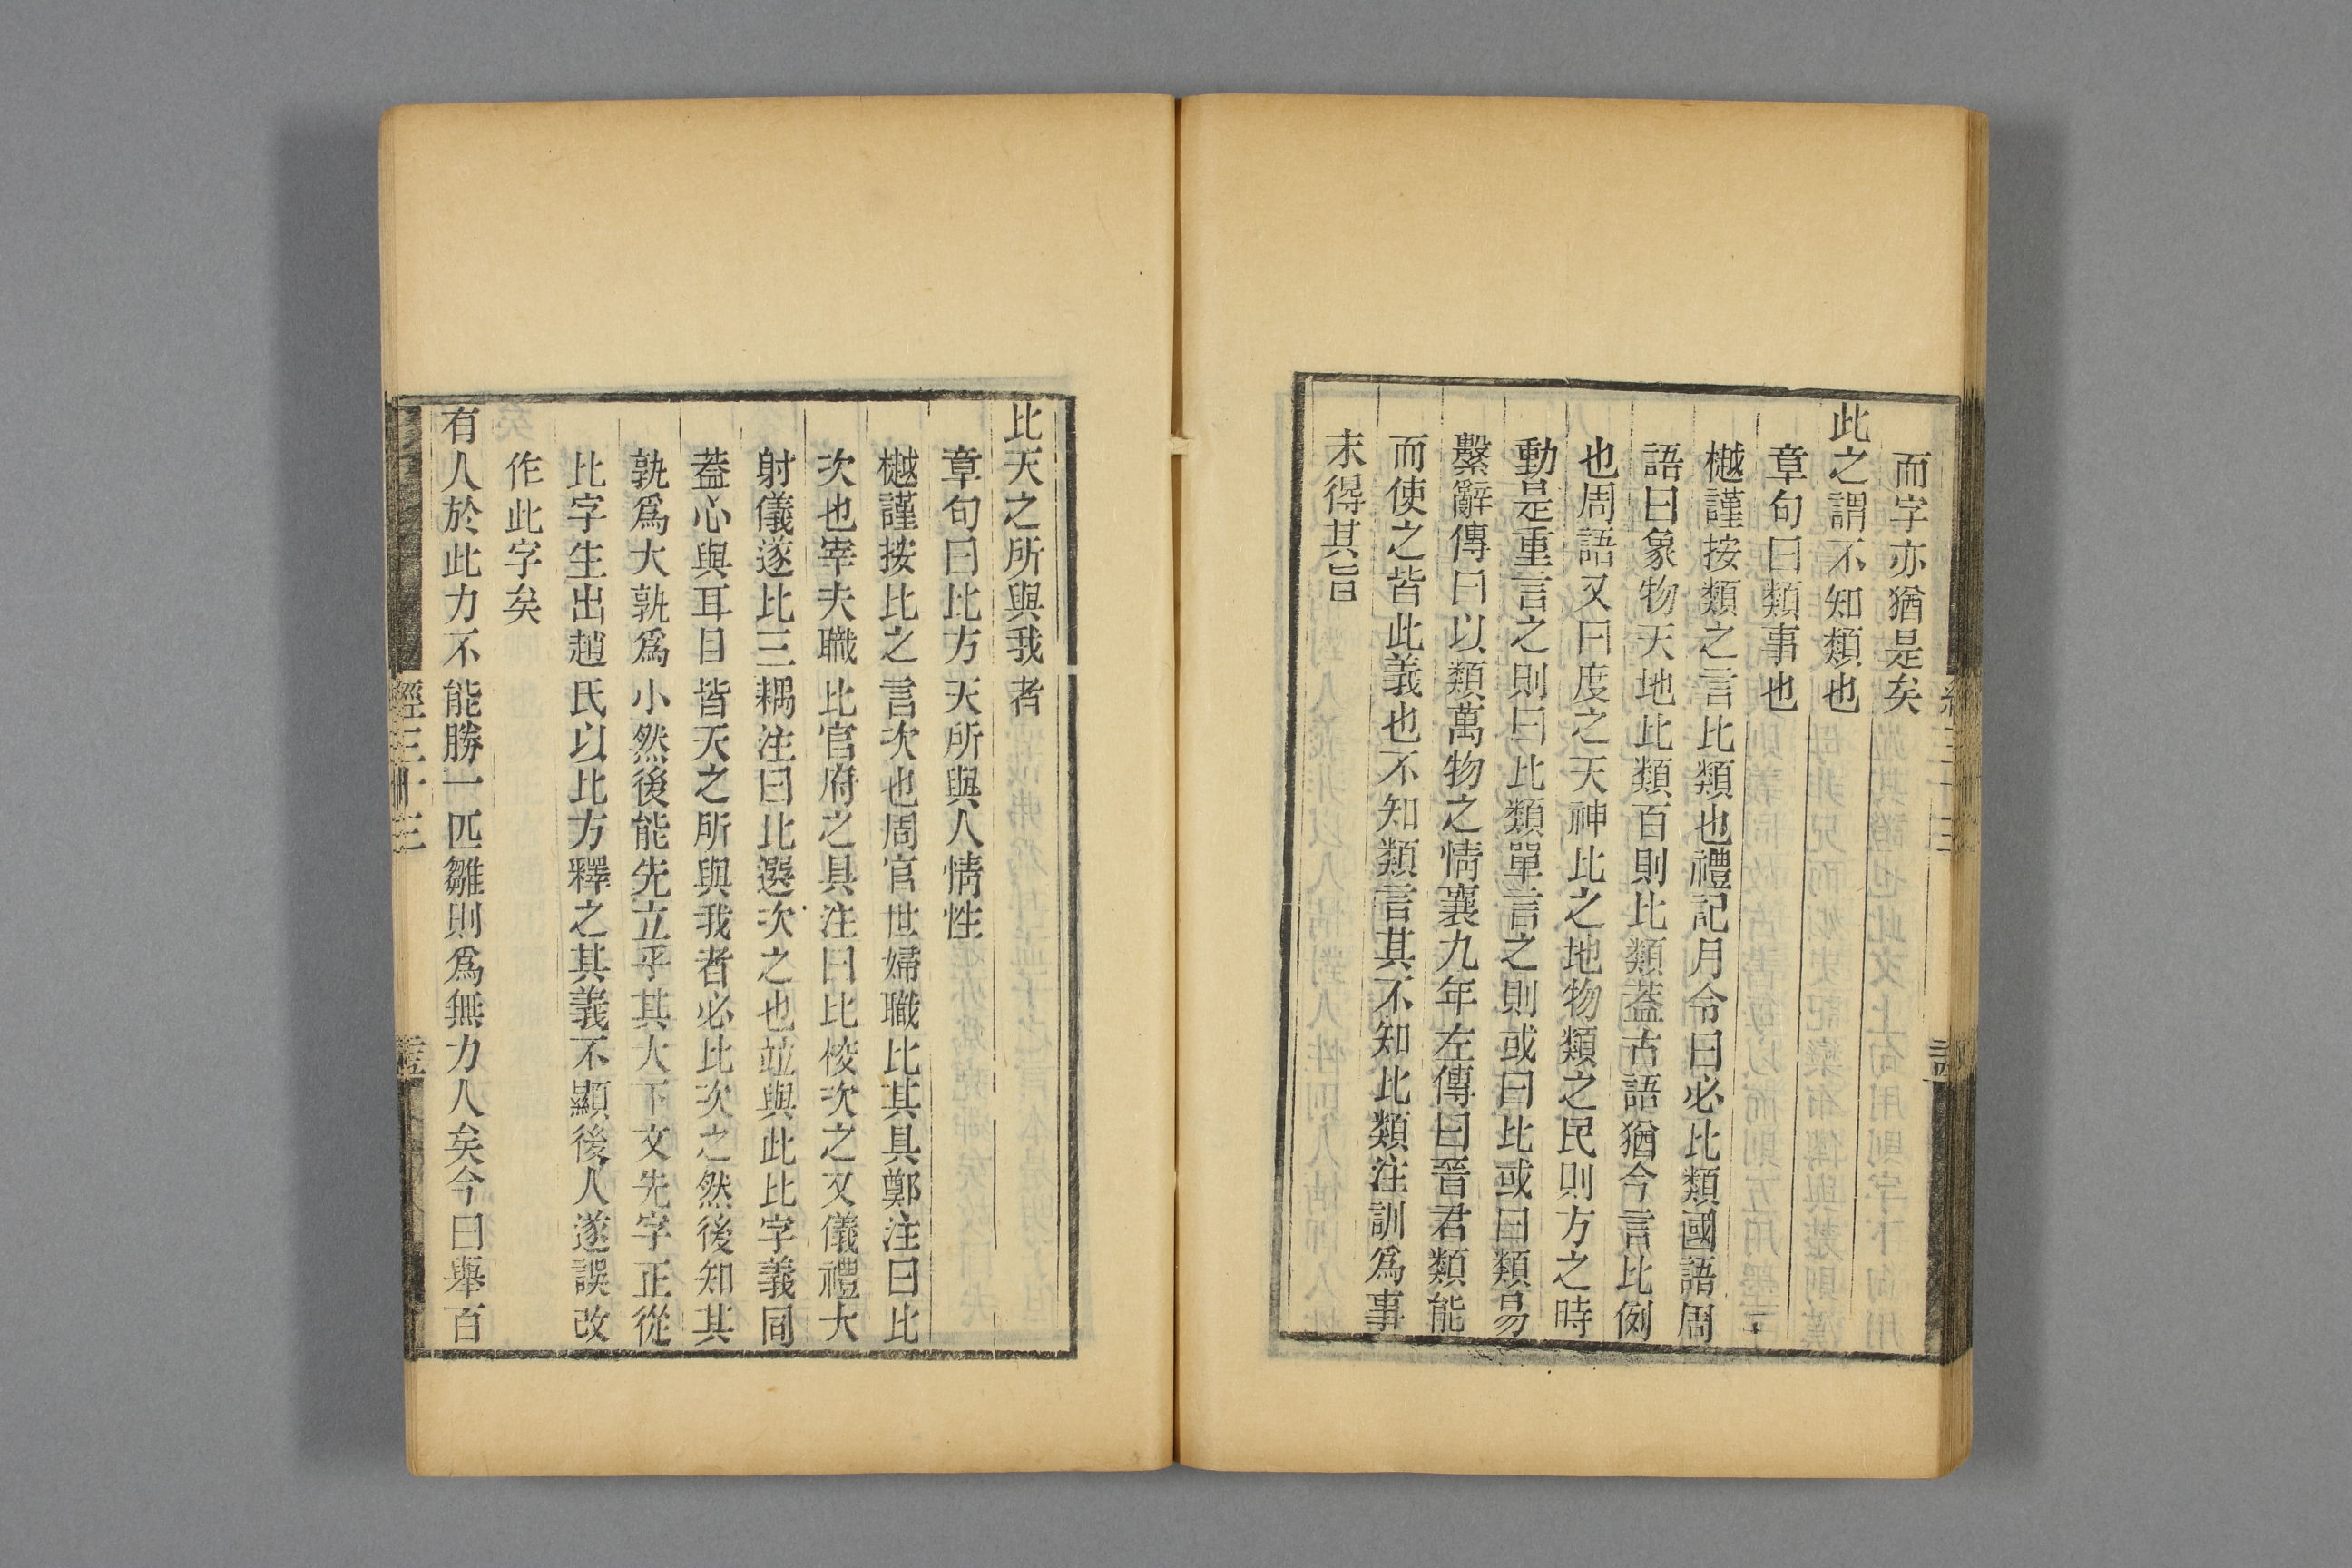 而字亦猶是矣
此之謂不知類也
章句曰類事也
樾謹按類之言比類也禮記月令曰必比類國語周
語曰象物天地比類百則比類蓋古語猶今言比例
也周語又曰度之天神比之地物類之民則方之時
動是重言之則曰比類單言之則或曰比或曰類易
繫辭傳曰以類萬物之情襄九年左傳曰晉君類能
而使之皆此義也不知類言其不知比類注訓爲事
未得其旨
比天之所與我者
章句曰比方天所與人情性
樾謹按比之言次也周官世婦職比其具鄭注曰比
次也宰夫職比官府之具注曰比校次之又儀禮大
射儀遂比三耦注曰比選次之也竝與此比字義同
蓋心與耳目皆天之所與我者必比次之然後知其
孰爲大孰爲小然後能先立乎其大下文先字正從
比字生出趙氏以比方釋之其義不顯後人遂誤改
作此字矣
有人於此力不能勝一匹雛則爲無力人矣今曰舉百
經三十三